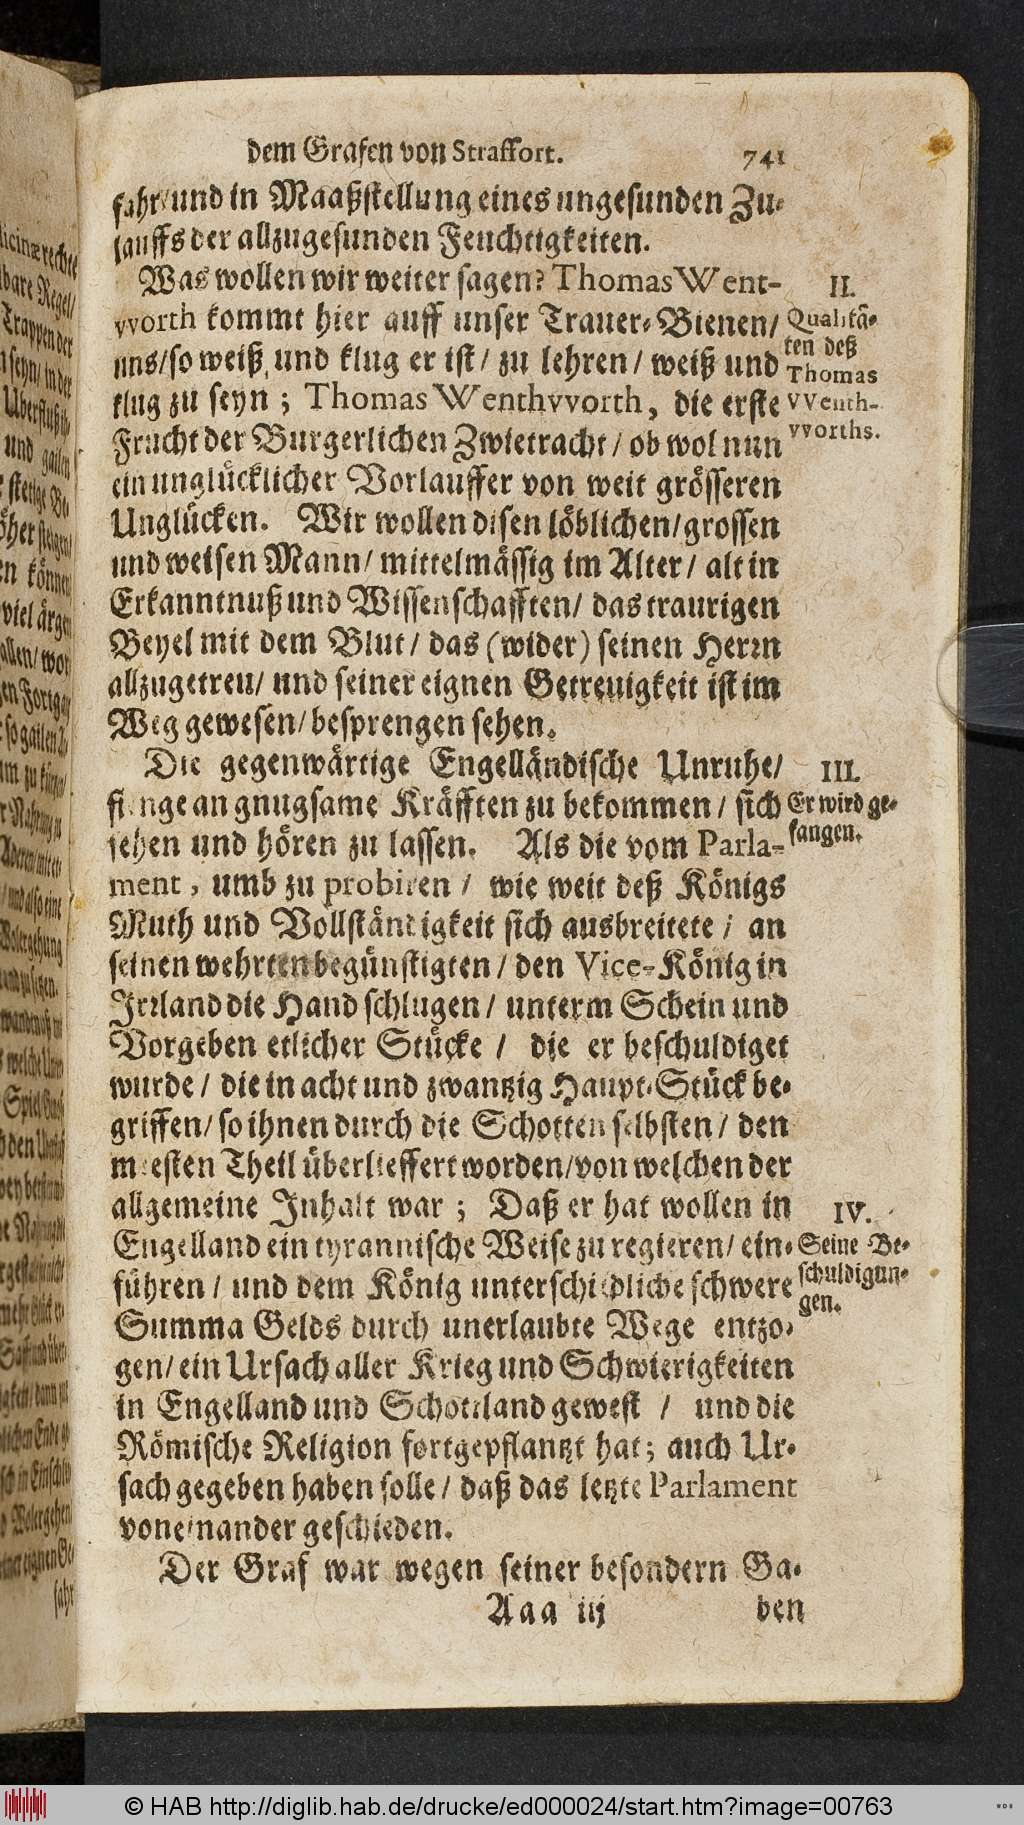 dem Grafen von Straffort. 741
fahr/und in Maaßstellung eines ungesunden Zu-
lauffs der allzugesunden Feuchtigkeiten.
Was wollen wir weiter sagen? Thomas Went-
vvorth kommt hier auff unser Trauer-Bienen/
uns/so weiß und klug er ist/ zu lehren/ weiß und
klug zu seyn; Thomas Wenthvvorth, die erste
Frucht der Burgerlichen Zwietracht/ ob wol nun
ein unglücklicher Vorlauffer von weit grösseren
Unglücken. Wir wollen disen löblichen/grossen
und weisen Mann/ mittelmässig im Alter/ alt in
Erkanntnuß und Wissenschafften/ das traurigen
Beyel mit dem Blut/ das (wider) seinen Herrn
allzugetreu/ und seiner eignen Getreuigkeit ist im
Weg gewesen/ besprengen sehen.
II.
Qualitä-
ten deß
Thomas
VVenth-
vvorths.
Die gegenwärtige Engelländische Unruhe/
fienge an gnugsame Kräfften zu bekommen/ sich
sehen und hören zu lassen. Als die vom Parla-
ment, umb zu probiren/ wie weit deß Königs
Muth und Vollständigkeit sich ausbreitete/ an
seinen wehrten begünstigten/ den Vice-König in
Irrland die Hand schlugen/ unterm Schein und
Vorgeben etlicher Stücke/ die er beschuldiget
wurde/ die in acht und zwantzig Haupt-Stück be-
griffen/ so ihnen durch die Schotten selbsten/ den
meesten Theil überlieffert worden/von welchen der
allgemeine Inhalt war; Daß er hat wollen in
Engelland ein tyrannische Weise zu regieren/ ein-
führen/ und dem König unterschiedliche schwere
Summa Gelds durch unerlaubte Wege entzo-
gen/ ein Ursach aller Krieg und Schwierigkeiten
in Engelland und Schottland gewest/ und die
Römische Religion fortgepflantzt hat; auch Ur-
sach gegeben haben solle/ daß das letzte Parlament
voneinander geschieden.
III.
Er wird ge-
fangen.
IV.
Seine Be-
schuldigun-
gen.
Der Graf war wegen seiner besondern Ga-
Aaa iij ben
© HAB http://diglib.hab.de/drucke/ed000024/start.htm?image=00763